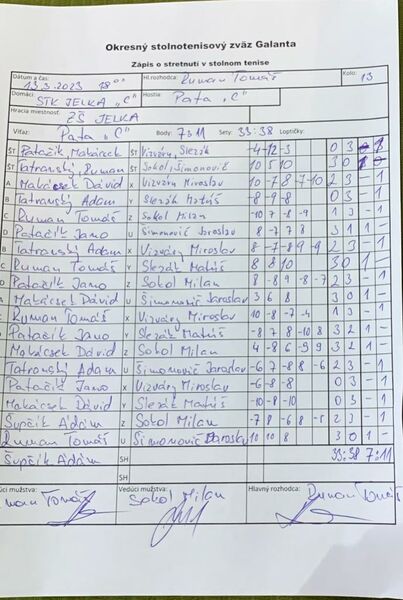 Okresný stolnotenisový zväz Galanta
Zápis o stretnutí v stolnom tenise
Dátum a čas: 13.3.2023 18°° Hl.rozhodca: Ruman Tomáš Kolo: 13
Domáci: STK JELKA „C" Hostia: Pata „C"
Hracia miestnosť: ZŠ JELKA
Víťaz: Pata „C" Body: 7:11 Sety: 33:38 Loptičky:
ŠT Patažik, Makácsek ŠT Vizváry, Slezák -4 -12 -3 0 3 0 1
ŠT Tatranský, Ruman ŠT Sokol, Šimonovič 10 5 10 3 0 1
A Makácsek Dávid X Vizváry Miroslav 10 -7 8 -7 -10 2 3 - 1
B Tatranský Adam Y Slezák Matúš -8 -9 -8 0 3 - 1
C Ruman Tomáš Z Sokol Milan -10 7 -8 -9 1 3 - 1
D Patažik Jano U Šimonovič Jaroslav 8 -7 7 8 3 1 1 -
B Tatranský Adam X Vizváry Miroslav 8 -7 -8 9 -9 2 3 - 1
C Ruman Tomáš Y Slezák Matúš 8 8 10 3 0 1 -
D Patažik Jano Z Sokol Milan 8 -8 9 -8 -7 2 3 - 1
A Makácsek Dávid U Šimonovič Jaroslav 3 6 8 3 0 1 -
C Ruman Tomáš X Vizváry Miroslav 10 -8 -7 -4 1 3 - 1
D Patažik Jano Y Slezák Matúš -8 7 8 -10 8 3 2 1 -
Makácsek Dávid Z Sokol Milan 4 -8 6 -9 9 3 2 1 -
Tatranský Adam U Šimonovič Jaroslav -6 7 -8 8 -6 2 3 - 1
Patažik Jano X Vizváry Miroslav -6 -8 -8 0 3 - 1
Makácsek Dávid Y Slezák Matúš -10 -8 -10 0 3 - 1
Šupčík Adrián Z Sokol Milan -7 8 -6 8 -8 2 3 - 1
Ruman Tomáš U Šimonovič Jaroslav 10 10 8 3 0 1 -
Šupčík Adrián SH 33:38 7:11
SH
dúci mužstva: Vedúci mužstva: Hlavný rozhodca:
man Tomáš Sokol Milan Ruman Tomáš